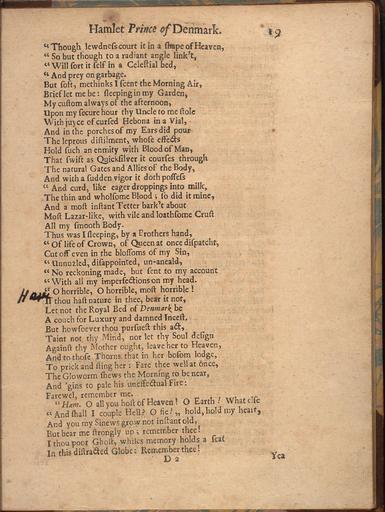 Hamlet Prince of Denmark. 19
“ Though lewdness court it in a shape of Heaven,
“ So but though to a radiant angle link't,
“ Will sort it self in a Celestial bed,
“ And prey on garbage.
But soft, methinks I scent the Morning Air,
Brief let me be: sleeping in my Garden,
My custom always of the afternoon,
Upon my secure hour thy Uncle to me stole
With juyce of cursed Hebona in a Vial,
And in the porches of my Ears did pour
The leprous distilment, whose effects
Hold such an enmity with Blood of Man,
That swift as Quicksilver it courses through
The natural Gates and Allies of the Body,
And with a sudden vigor it doth possess
“ And curd, like eager droppings into milk,
The thin and wholsome Blood; so did it mine,
And a most instant Tetter bark't about
Most Lazar-like, with vile and loathsome Crust
All my smooth Body.
Thus was I sleeping, by a Brothers hand,
“ Of life of Crown, of Queen at once dispatcht,
Cut off even in the blossoms of my Sin,
“ Unnuzled, disappointed, un-aneald,
“ No reckoning made, but sent to my account
“ With all my imperfections on my head.
Ham “ O horrible, O horrible, most horrible!
If thou hast nature in thee, bear it not,
Let not the Royal Bed of Denmark be
A couch for Luxury and damned Incest.
But howsoever thou pursuest this act,
Taint not thy Mind, nor let thy Soul design
Against thy Mother ought, leave her to Heaven,
And to those Thorns that in her bosom lodge,
To prick and sting her: Fare thee well at once,
The Gloworm shews the Morning to be near,
And 'gins to pale his uneffectual Fire:
Farewel, remember me.
“ Ham. O all you host of Heaven! O Earth! What else
“ And shall I couple Hell? O fie! „ hold, hold my heart,
And you my Sinews grow not instant old,
But bear me strongly up; remember thee!
I thou poor Ghost, whiles memory holds a seat
In this distracted Globe: Remember thee!
D 2 Yea